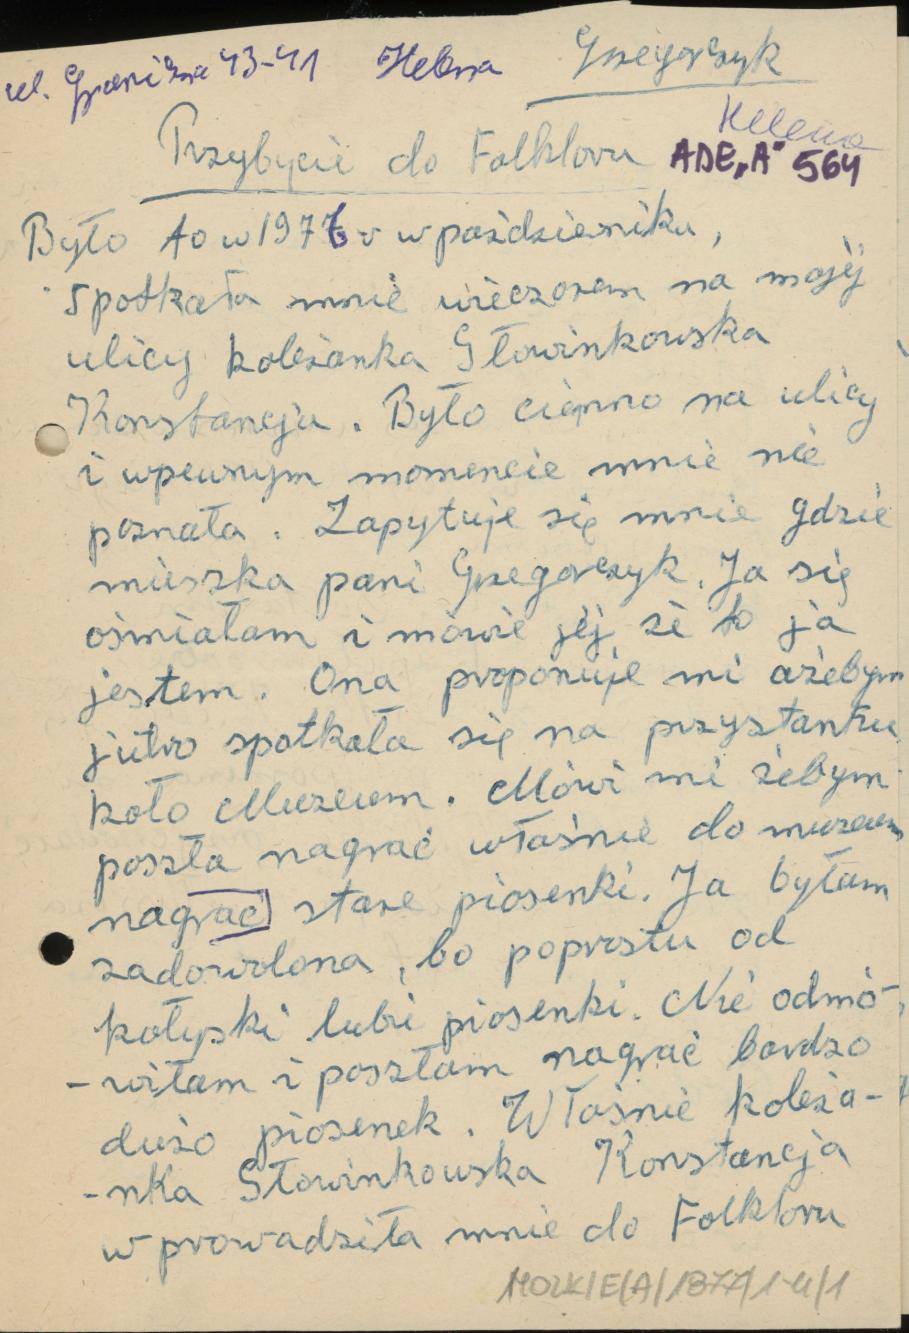 ul. Graniczna 43-41 Helena Grzegorczyk
Helena
Przybycie do Folkloru ADE„A" 564
Było to w 1976 r w październiku,
spotkała mnie wieczorem na mojéj
ulicy koleżanka Słowinkowska
Konstancja. Było ciemno na ulicy
i wpewnym momencie mnie nie
poznała. Zapytuje się mnie gdzie
mieszka pani Grzegorczyk. Ja się
ośmiałam i mówie jéj że to ja
jestem. Ona proponuje mi ażebym
jutro spotkała się na przystanku
koło Muzeum. Mówi mi żebym
poszła nagrać właśnie do muzeum
nagrać stare piosenki. Ja byłam
zadowolona, bo poprostu od
kołyski lubie piosenki. Nie odmó-
- wiłam i poszłam nagrać bardzo
dużo piosenek. Właśnie koleża-
- nka Słowinkowska Konstancja
wprowadziła mnie do Folkloru
MOZK/E/A/1877/1-4/1